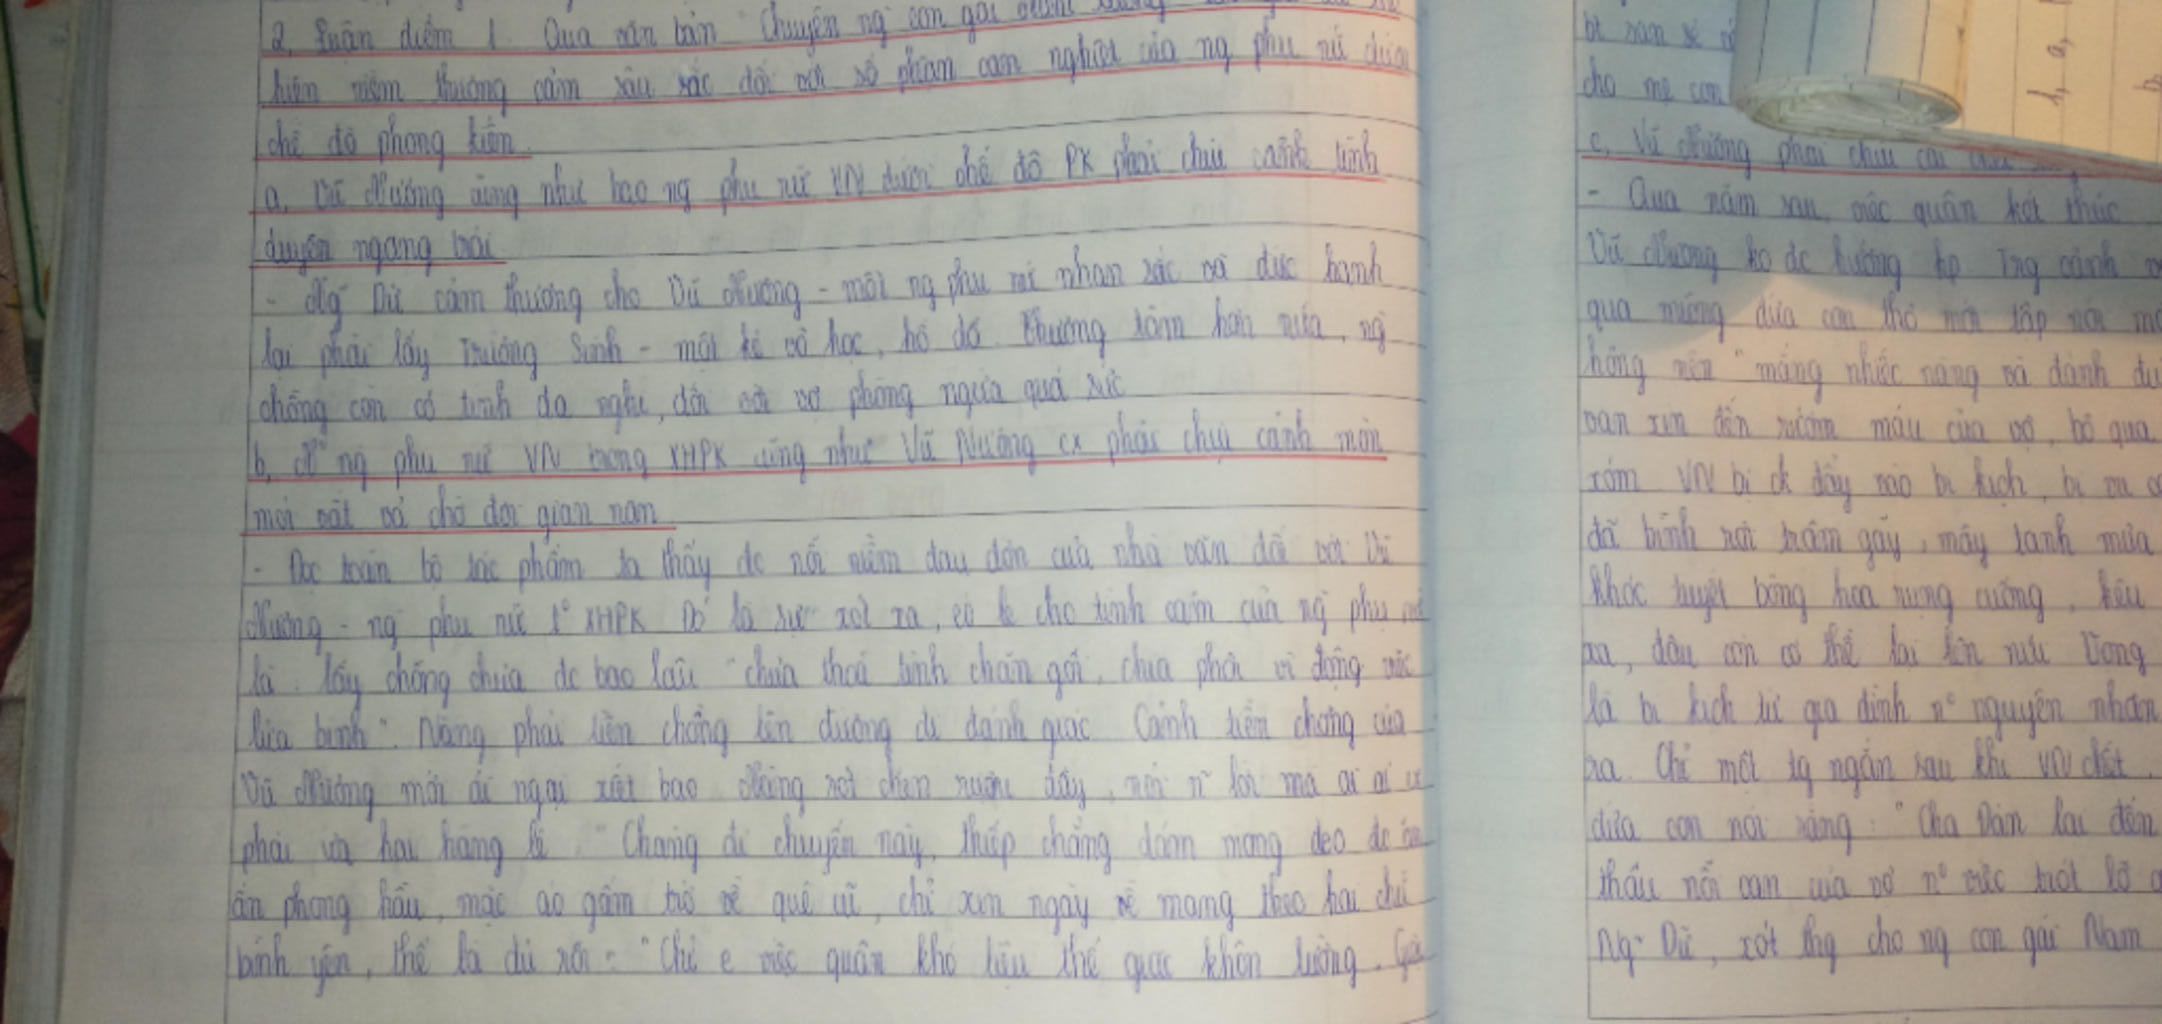 2, Luận điểm 1. Qua văn bản "Chuyện ng con gái
hiện niềm thương cảm sâu sắc đối với số phận oan nghiệt của ng phụ nữ dưới
chế độ phong kiến.
a, Vũ Nương cũng như bao ng phụ nữ VN dưới chế độ PK phải chịu cảnh tình
duyên ngang trái
- Ng~ Dữ cảm thương cho Vũ Nương - một ng phụ nữ nhan sắc và đức hạnh
lại phải lấy Trương Sinh - một kẻ vô học, hồ đồ. Thương tâm hơn nữa, ng
chồng còn có tính đa nghi, đối với vợ phòng ngừa quá sức
b, ng phụ nữ VN trong XHPK cũng như Vũ Nương cx phải chịu cảnh mòn
mỏi vất vả chờ đợi gian nan
- Đọc toàn bộ tác phẩm ta thấy đc nỗi niềm đau đớn của nhà văn đối với Vũ
Nương - ng phụ nữ t° XHPK. Đó là sự xót xa, cho tình cảm của ng phụ nữ
là lấy chồng chưa đc bao lâu "chưa thoả tình chăn gối, chưa phỉ
lửa binh". Nàng phải tiễn chồng lên đường đi đánh giặc. Cảnh tiễn chồng của
Vũ Nương mới ái ngại xiết bao. Nàng rót chén rượu đầy, nói n~ lời mà ai ai cx
phải ứa hai hàng lệ. "Chàng đi chuyến này, thiếp chẳng dám mong đeo đc ấn
ấn phong hầu, mặc áo gấm trở về quê cũ, chỉ xin ngày về mang theo hai chữ
bình yên, thế là đủ rồi." "Chỉ e việc quân khó liệu thế giặc khôn lường. Giặc
cho mẹ con
c, Vũ Nương phải chịu cái
- Qua năm sau, việc quân kết thúc
Vũ Nương ko đc hưởng hp trg cảnh
qua miệng đứa con thơ mới tập nói
hồng nên "mắng nhiếc nàng và đánh đu
van xin đến rướm máu của vợ, bỏ qua
xóm. VN bị ck đẩy vào bi kịch, bị
đã bình rơi trâm gãy, mây tạnh mưa
khóc tuyết bông hoa rụng cuống, kêu
xa, đâu còn có thể lại lên núi Vọng
là bi kịch từ gia đình n° nguyên nhân
ra. Chỉ một tg ngắn sau khi VN chết,
đứa con nói rằng: "Cha Đản lại đến
thấu nỗi oan của vợ n° việc trót lỡ
Ng~ Dữ, xót thg cho ng con gái Nam